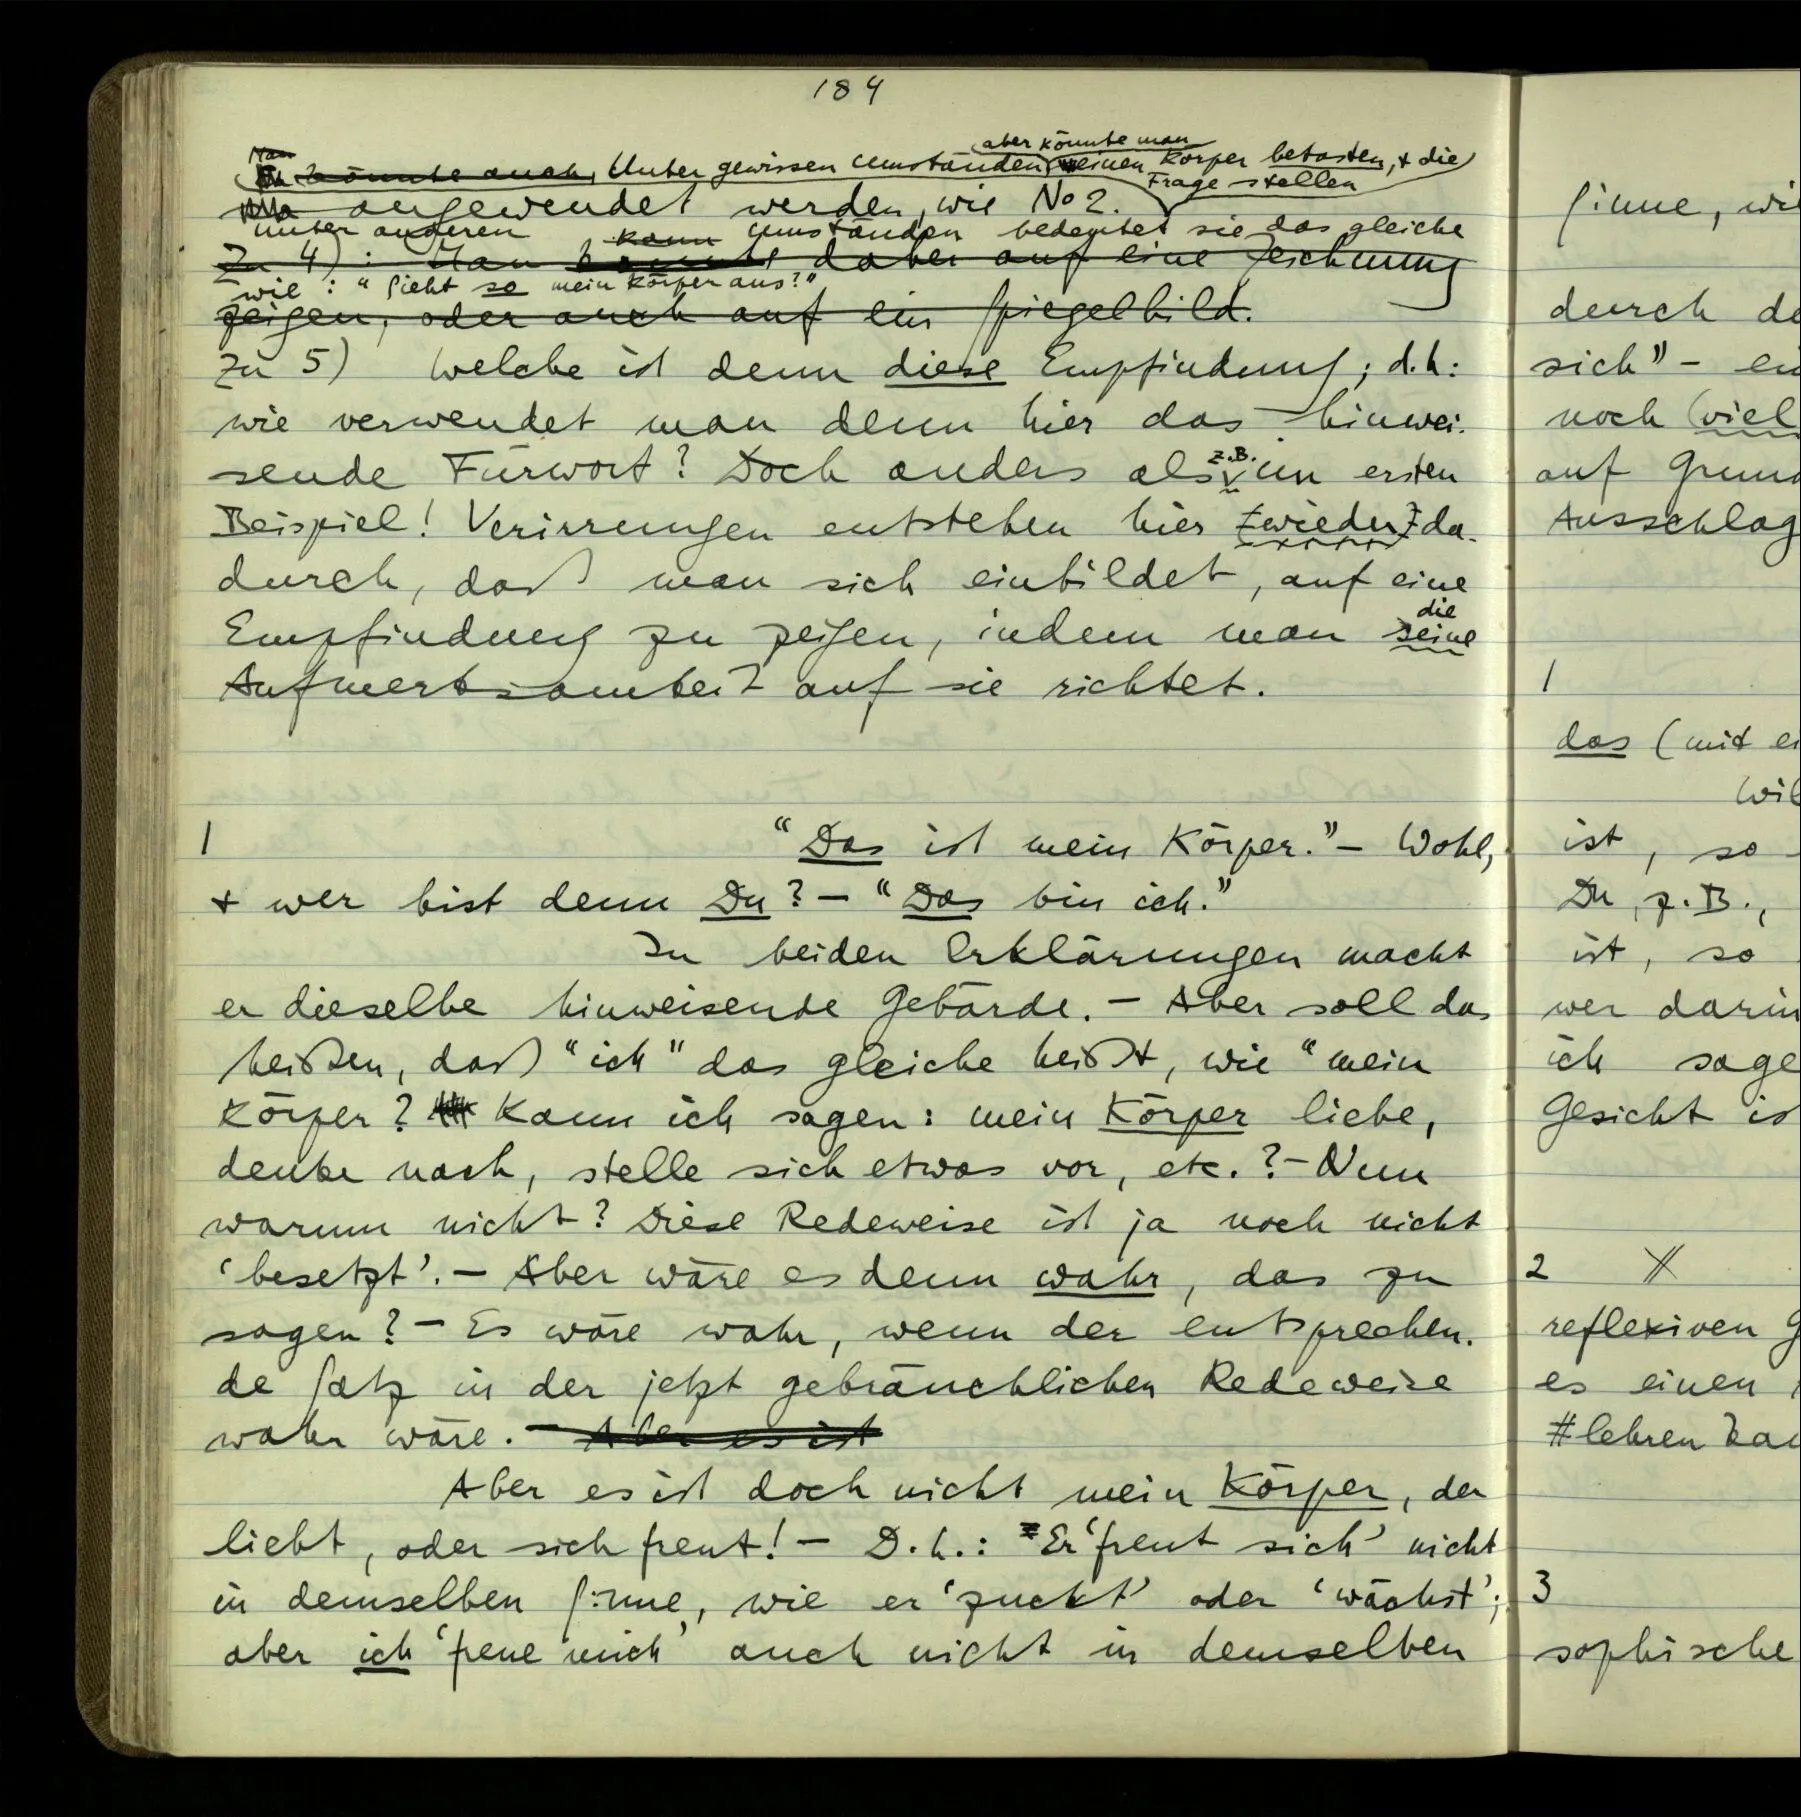 184
aber könnte man
Man
könnte auch, Unter gewissen Umständen einen Körper betasten, + die
Frage stellen
angewendet werden, wie No 2.
unter anderen kann Umständen bedeutet sie das gleiche
Zu 4): Man daher auf eine Zeichnung
wie: "Sieht so mein Körper aus?"
zeigen, oder auch auf ein Spiegelbild.
Zu 5) Welche ist denn diese Empfindung; d.h:
wie verwendet man denn hier das hinwei-
z.B.
sende Fürwort? Doch anders als im ersten
Beispiel! Verirrungen entstehen hier wieder da-
durch, daß man sich einbildet, auf eine
die
Empfindung zu zeigen, indem man seine
Aufmerksamkeit auf sie richtet.
1 "Das ist mein Körper." – Wohl,
+ wer bist denn Du? – "Das bin ich."
In beiden Erklärungen macht
er dieselbe hinweisende Gebärde. – Aber soll das
heißen, daß "ich" das gleiche heißt, wie "mein
Körper? Kann ich sagen: mein Körper liebe,
denke nach, stelle sich etwas vor, etc.? – Nun
warum nicht? Diese Redeweise ist ja noch nicht
'besetzt'. – Aber wäre es denn wahr, das zu
sagen? – Es wäre wahr, wenn der entsprechen-
de Satz in der jetzt gebräuchlichen Redeweise
wahr wäre. – Aber es ist
Aber es ist doch nicht mein Körper, der
liebt, oder sich freut! – D.h.: Er 'freut sich' nicht
in demselben Sinne, wie er 'zuckt' oder 'wächst';
aber ich 'freue mich' auch nicht in demselben
Sinne, wi
durch de
sich" – ei
noch (viel
auf Grund
Ausschlag
1
das (mit ei
Wil
ist, so
Du, z.B.,
ist, so
wer darin
ich sage
Gesicht is
2
reflexiven G
es einen
lehren kan
3
sophische